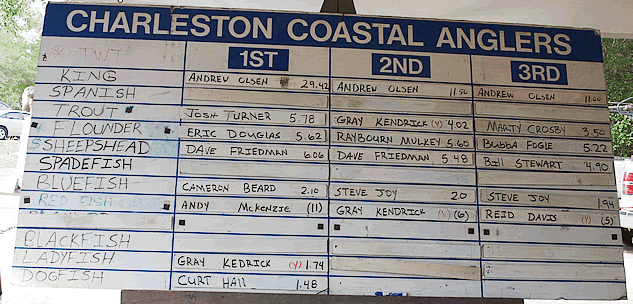 CHARLESTON COASTAL ANGLERS
1ST 2ND 3RD
KING ANDREW OLSEN 29.42 ANDREW OLSEN 11.50 ANDREW OLSEN 11.00
SPANISH
TROUT JOSH TURNER 5.78 GRAY KENDRICK (Y) 4.02 MARTY CROSBY 3.50
FLOUNDER ERIC DOUGLAS 5.62 RAYBOURN MULKEY 5.60 BUBBA FOGLE 5.22
SHEEPSHEAD DAVE FRIEDMAN 6.06 DAVE FRIEDMAN 5.48 BILL STEWART 4.90
SPADEFISH
BLUEFISH CAMERON BEARD 2.10 STEVE JOY 2.0 STEVE JOY 1.94
RED FISH ANDY MCKENZIE (11) GRAY KENDRICK (Y) (6) REID DAVIS (Y) (5)
BLACKFISH
LADYFISH GRAY KEDRICK (Y) 1.74
DOGFISH CURT HALL 1.48